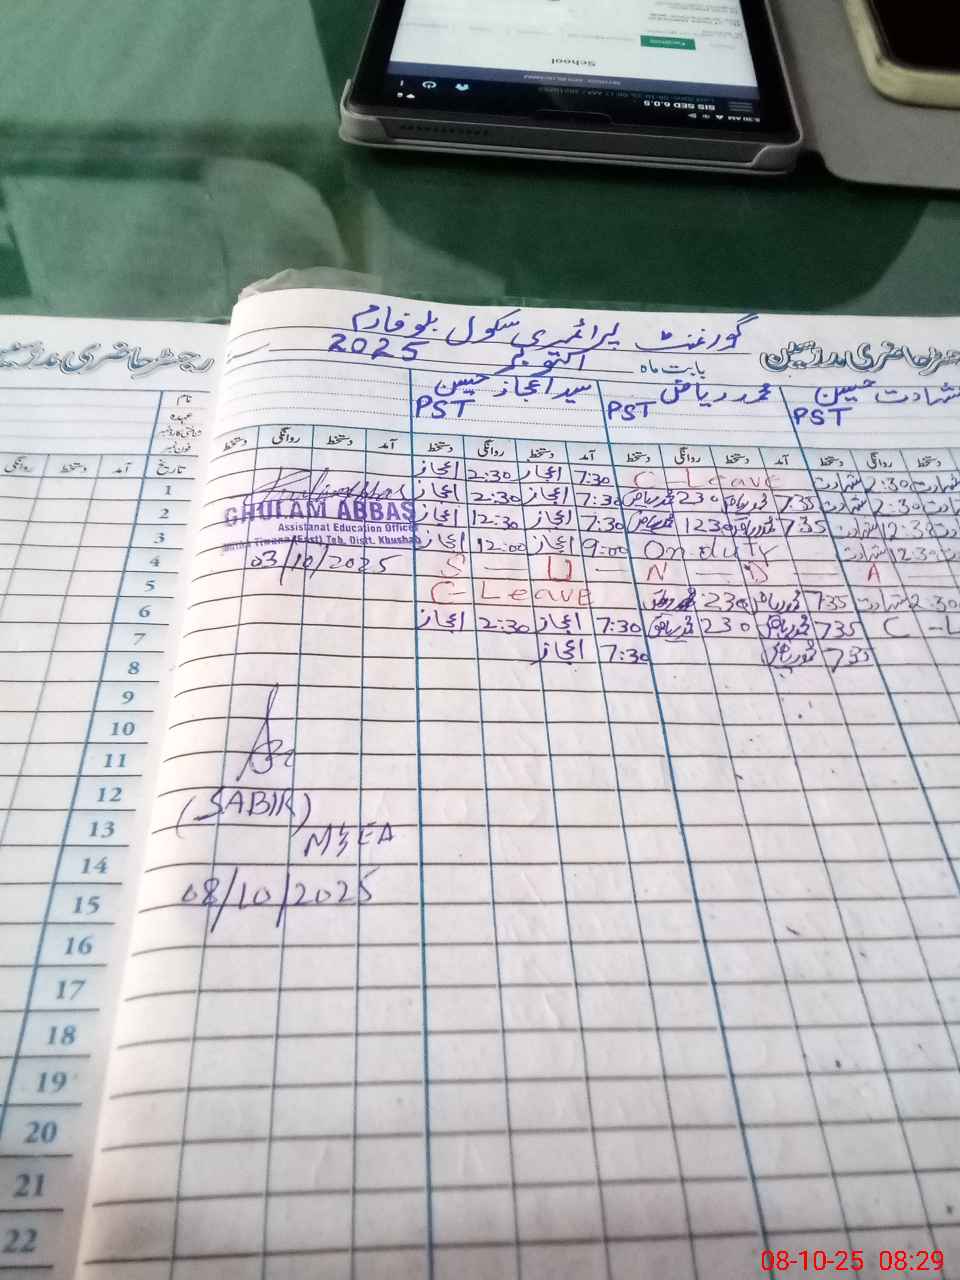 School
SIS SED 6.0.5
گورنمنٹ پرائمری سکول بلو فارم
رجسٹر حاضری مدرسین
بابت ماہ اکتوبر 2025
سید اعجاز حسین محمد ریاض شہادت حسین
PST PST PST
نام
عہدہ
فون نمبر
تاریخ
آمد دستخط روانگی دستخط آمد دستخط روانگی دستخط آمد دستخط روانگی دستخط
7:30 اعجاز 2:30 اعجاز C-Leave شہادت 2:30 شہادت
7:30 اعجاز 2:30 اعجاز 735 محمد ریاض 230 محمد ریاض شہادت 2:30 شہادت
7:30 اعجاز 12:30 اعجاز 735 محمد ریاض 1230 محمد ریاض شہادت 12:30 شہادت
9:00 اعجاز 12:00 اعجاز On duty شہادت 12:30 شہادت
S — U — N — D — A —
C-Leave 735 محمد ریاض 230 محمد ریاض شہادت 2:30
7:30 اعجاز 2:30 اعجاز 735 محمد ریاض 230 محمد ریاض C-L
7:30 اعجاز 735 محمد ریاض
GHULAM ABBAS
Assistanat Education Officer
Mitha Tiwana (East) Teh. Distt. Khushab
03/10/2025
(SABIR)
MEA
08/10/2025
1
2
3
4
5
6
7
8
9
10
11
12
13
14
15
16
17
18
19
20
21
22
08-10-25 08:29